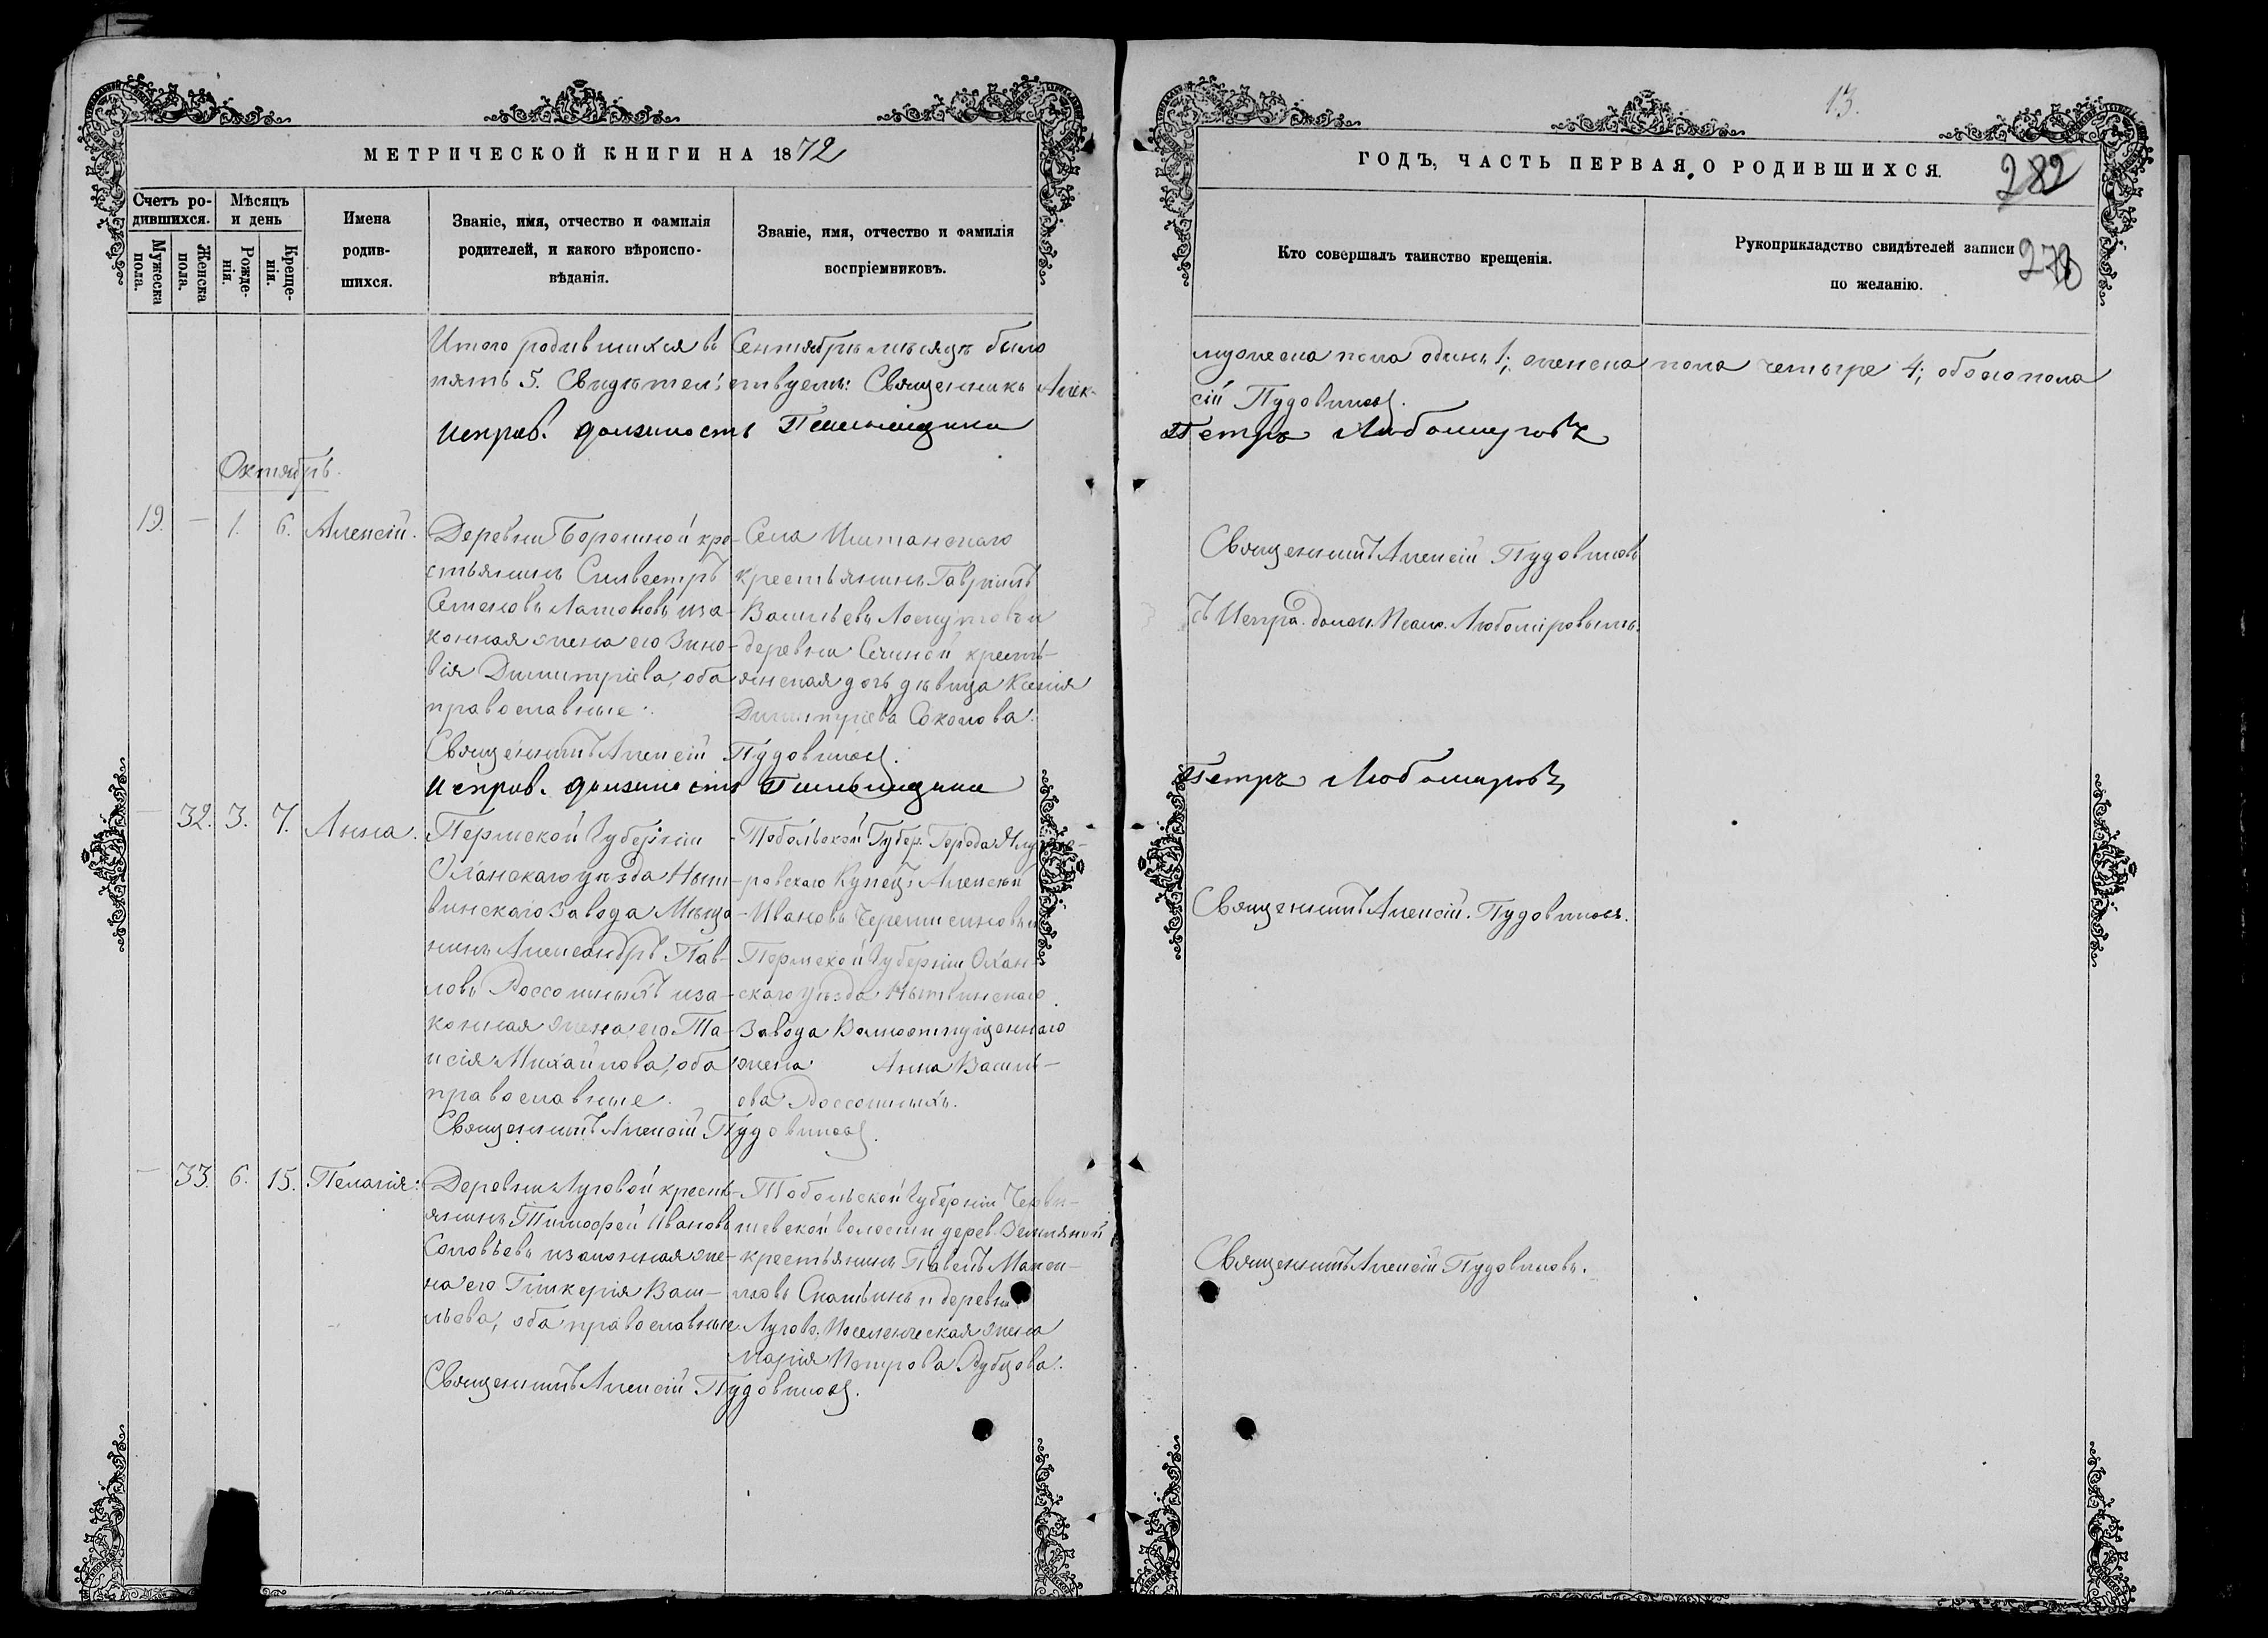 МЕТРИЧЕСКОЙ КНИГИ НА 1872
Счетъ ро-
дившихся.
Мужеска
пола.
Женска
пола.
Мѣсяцъ
и день
Рожде-
нія.
Креще-
нія.
Имена
родив-
шихся.
Званіе, имя, отчество и фамилія
родителей, и какого вѣроиспо-
вѣданія.
Званіе, имя, отчество и фамилія
воспріемниковъ.
Итого родившихся въ Сентябрѣ мѣсяцѣ было
пять 5. Свидѣтельствуетъ: Священникъ Алек-
Исправ. должность Псаломщика
Октябрь.
19. — 1. 6. Алексій.
Деревни кре-
стьянинъ Сильвестръ
Семеновъ и за-
конная жена его Зино-
вія Димитріева, оба
православные.
Села
крестьянинъ Гавріилъ
Васильевъ и
деревни крестъ-
янская дочь дѣвица Ксенія
Димитріева Соколова.
Священникъ Алексій Пудовиковъ.
Исправ. должность Псаломщика
— 32. 3. 7. Анна.
Пермской Губерніи
Оханскаго уѣзда Ныт-
винскаго Завода Мѣща-
нинъ Александръ Пав-
ловъ Россомныхъ и за-
конная жена его Та-
исія Михайлова, оба
православные.
Тобольской Губер. Города Ялуто-
ровскаго Купецъ Алексѣй
Ивановъ Черемисиновъ и
Пермской Губерніи Охан-
скаго уѣзда Нытвинскаго
Завода Вольноотпущеннаго
жена Анна Василь-
ева Россомныхъ.
Священникъ Алексій Пудовиковъ.
— 33. 6. 15. Пелагія.
Деревни Луговой кресть-
янинъ Тимофей Ивановъ
Соловьевъ и законная же-
на его Гликерія Васи-
льева, оба православные.
Тобольской Губерніи Черви-
шевской волости дерев.
крестьянинъ Павелъ Макси-
мовъ и деревни
Лугово. Поселенческая жена
Марія Петрова Рубцова.
Священникъ Алексій Пудовиковъ.
13.
ГОДЪ, ЧАСТЬ ПЕРВАЯ, О РОДИВШИХСЯ.
282
278
Кто совершалъ таинство крещенія.
Рукоприкладство свидѣтелей записи
по желанію.
мужеска пола одинъ 1; женска пола четыре 4; обоего пола
сій Пудовиковъ.
Петръ Любомировъ
Священникъ Алексій Пудовиковъ
съ Испра. долж. Псало. Любомировымъ.
Петръ Любомировъ
Священникъ Алексій Пудовиковъ.
Священникъ Алексій Пудовиковъ.